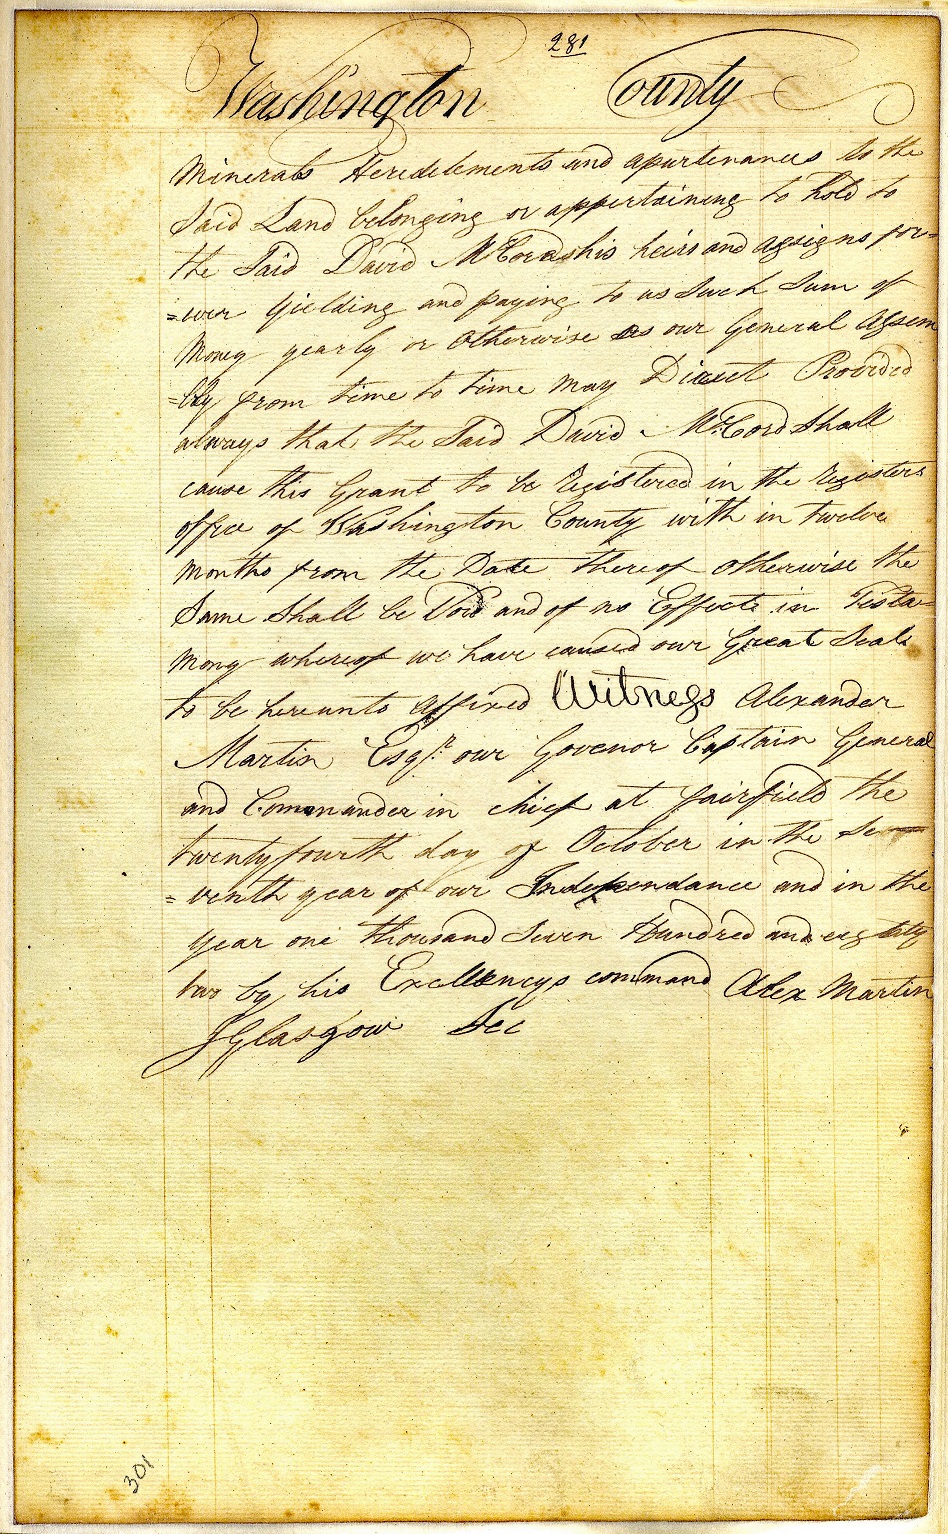 281
Washington County
Minerals Heredetements and apurtenances to the
Said Land belonging or appertaining to hold to
the Said David McCord his heirs and assigns for=
=ever yielding and paying to us Such Sum of
Money yearly or otherwise as our General Assem
=bly from time to time may Direct Provided
always that the Said David McCord Shall
cause this Grant to be registered in the registers
office of Washington County with in twelve
Months from the Date thereof otherwise the
Same Shall be Void and of no Effect in Testa=
mony whereof we have caused our Great Seal
to be hereunto affixed Witness Alexander
Martin Esqr. our Govenor Captain General
and Commander in chief at fairfield the
twenty fourth day of October in the Se
=venth year of our Independance and in the
year one thousand Seven Hundred and eighty
two by his Excellencys command Alex Martin
J Glasgow Sec
301